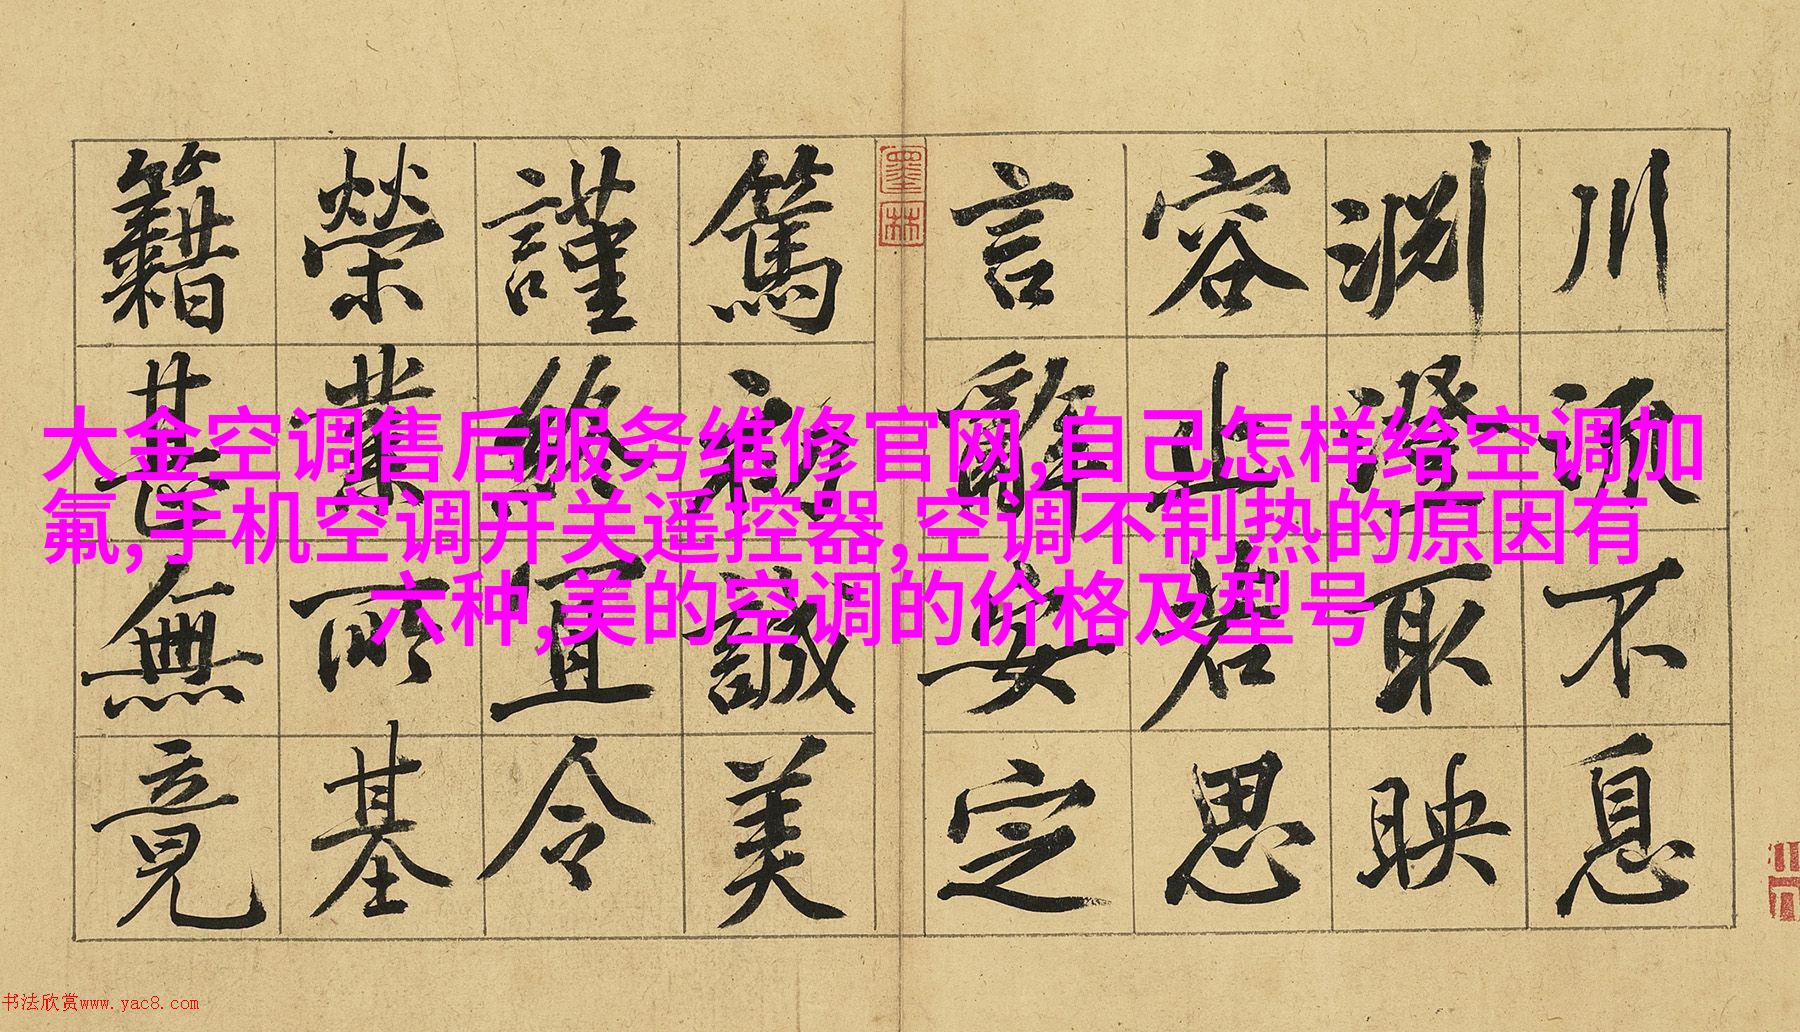 川流不息
淵澄取映
容止若思
言辭安定
墨林
篤初誠美
謹終宜令
榮業所基
籍甚無竟
大金空调售后服务维修官网,自己怎样给空调加
氟,手机空调开关遥控器,空调不制热的原因有
六种,美的空调的价格及型号
书法欣赏www.yac8.com